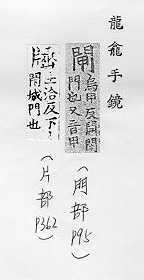 龍龕手鏡
閘 烏甲反閉門
門也又音甲
(門部 P95)
士洽反下
閘城門也
(片部 P362)